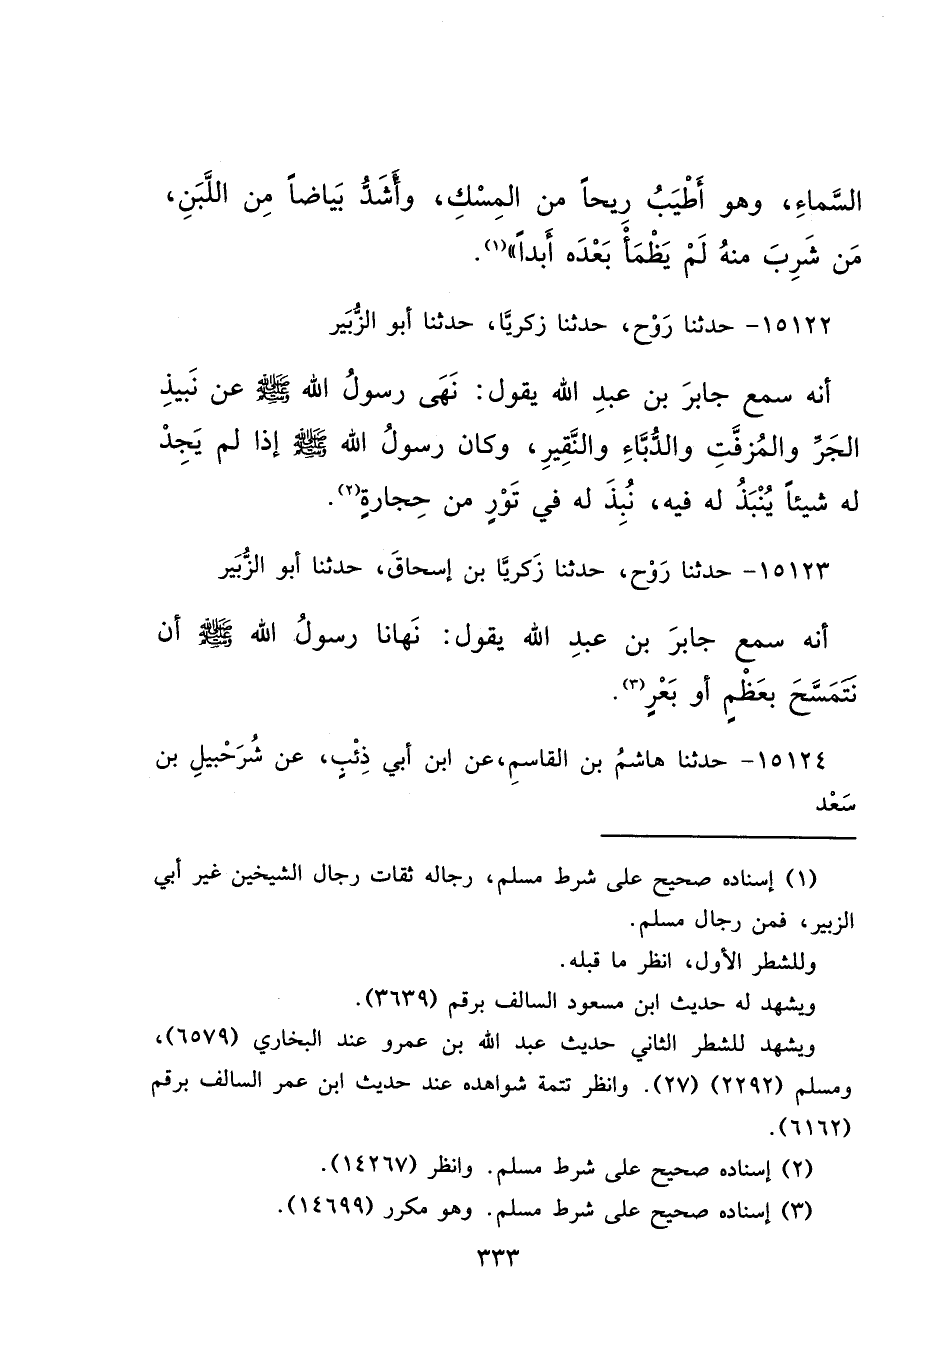 السَّماءِ، وهو أَطْيَبُ رِيحاً من المِسْكِ، وأَشَدُّ بَياضاً مِن اللَّبَنِ،
مَن شَرِبَ منهُ لَمْ يَظْمَأْ بَعْدَه أَبداً»(١).
١٥١٢٢- حدثنا رَوْح، حدثنا زكريَّا، حدثنا أبو الزُّبَير
أنه سمع جابرَ بن عبدِ الله يقول: نَهَى رسولُ الله ﷺ عن نَبيذِ
الجَرِّ والمُزفَّتِ والدُّبَّاءِ والنَّقِيرِ، وكان رسولُ الله ﷺ إذا لم يَجِدْ
له شيئاً يُنْبَذُ له فيه، نُبِذَ له في تَوْرٍ من حِجارةٍ(٢).
١٥١٢٣- حدثنا رَوْح، حدثنا زَكريَّا بن إسحاقَ، حدثنا أبو الزُّبَير
أنه سمع جابرَ بن عبدِ الله يقول: نَهانا رسولُ الله ﷺ أن
نَتَمَسَّحَ بعَظْمٍ أو بَعْرٍ(٣).
١٥١٢٤- حدثنا هاشمُ بن القاسمِ،عن ابن أبي ذِئْبٍ، عن شُرَحْبيلِ بن
سَعْد
(١) إسناده صحيح على شرط مسلم، رجاله ثقات رجال الشيخين غير أبي
الزبير، فمن رجال مسلم.
وللشطر الأول، انظر ما قبله.
ويشهد له حديث ابن مسعود السالف برقم (٣٦٣٩).
ويشهد للشطر الثاني حديث عبد الله بن عمرو عند البخاري (٦٥٧٩)،
ومسلم (٢٢٩٢) (٢٧). وانظر تتمة شواهده عند حديث ابن عمر السالف برقم
(٦١٦٢).
(٢) إسناده صحيح على شرط مسلم. وانظر (١٤٢٦٧).
(٣) إسناده صحيح على شرط مسلم. وهو مكرر (١٤٦٩٩).
٣٣٣